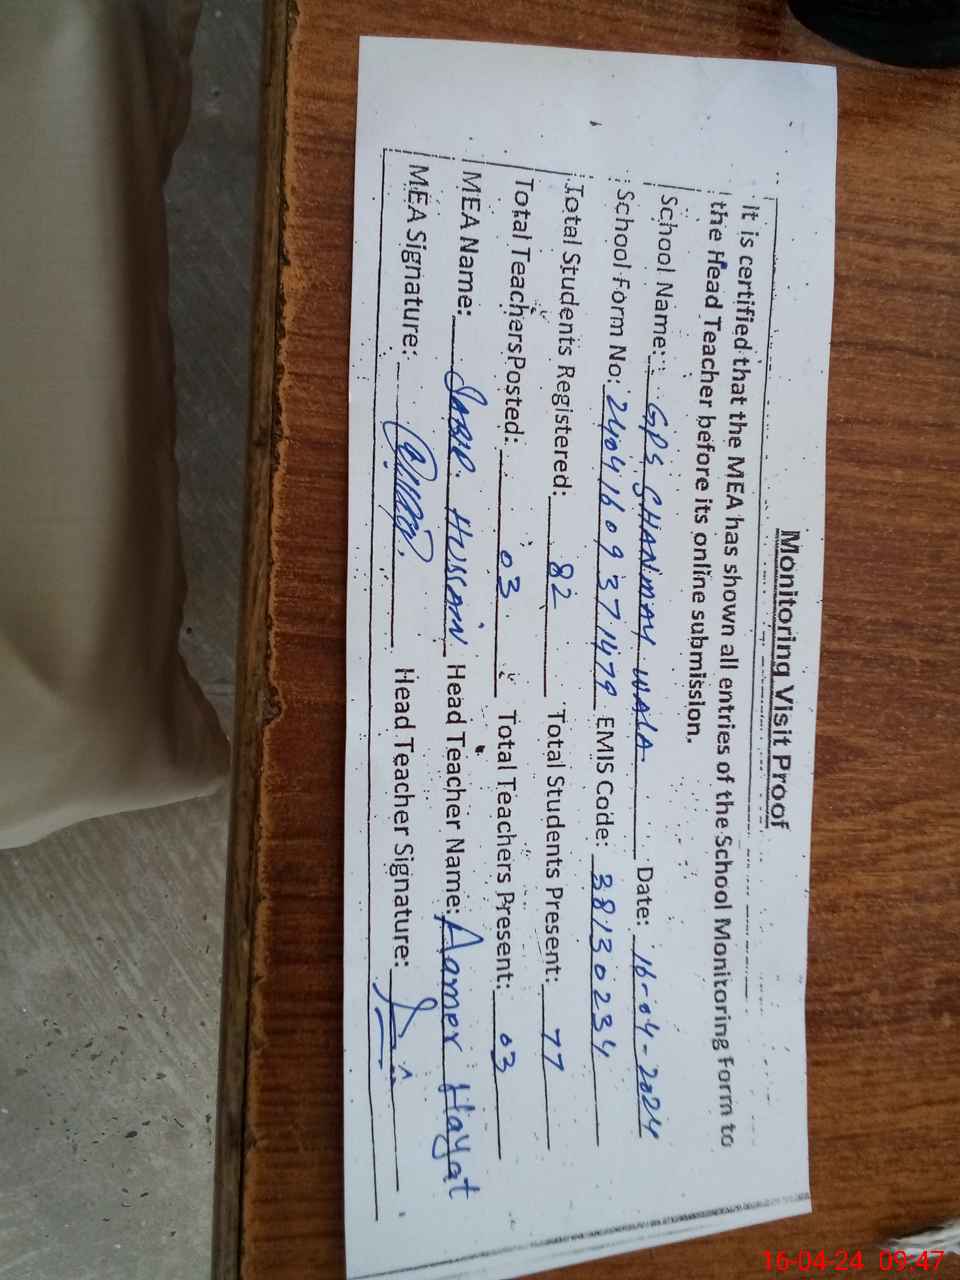 Monitoring Visit Proof
It is certified that the MEA has shown all entries of the School Monitoring Form to
the Head Teacher before its online submission.
School Name: GPS SHANMAY WALA Date: 16-04-2024
School Form No: 2404160937 1479 EMIS Code: 38130234
Total Students Registered: 82 Total Students Present: 77
Total Teachers Posted: 03 Total Teachers Present: 03
MEA Name: SABIR HUSSAIN Head Teacher Name: Aamer Hayat
MEA Signature: Head Teacher Signature:
16-04-24 09:47